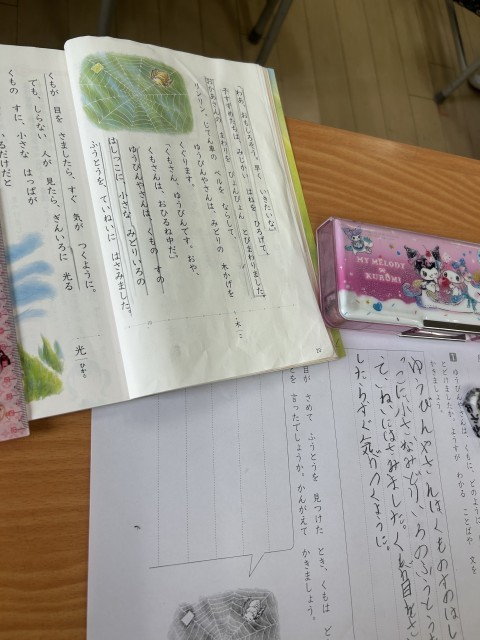 「わあ、おもしろそう。早く いきたいな。」
子すずめたちは、みじかい はねを ひろげて、
おかあさんの まわりを ぴょんぴょん とびまわりました。
リンリン、じてん車の ベルを ならして、
ゆうびんやさんは、みどりの 木かげを
くぐります。
「くもさん、ゆうびんです。おや、
くもさんは、おひるね中だ。」
ゆうびんやさんは、くもの すの
はしっこに、小さな みどりいろの
ふうとうを、ていねいに はさみました。
木 こ
くもが 目を さましたら、すぐ 気が つくように。
でも、しらない 人が 見たら、ぎんいろに 光る
くもの すに、小さな はっぱが
いるだけだと
光 ひか・る
MY MELODY
KUROMI
1 ゆうびんやさんは、くもに、どのように
とどけましたか。ようすが わかる ことばや 文を
かきましょう。
ゆうびんやさんはくものすのはし
っこに小さなみどりいろのふうとう
て、ねいにはさみました。くもが目をさ
したらすぐ気がつくように。
目が さめて ふうとうを 見つけた とき、くもは ど
を 言ったでしょうか。かんがえて かきましょう。